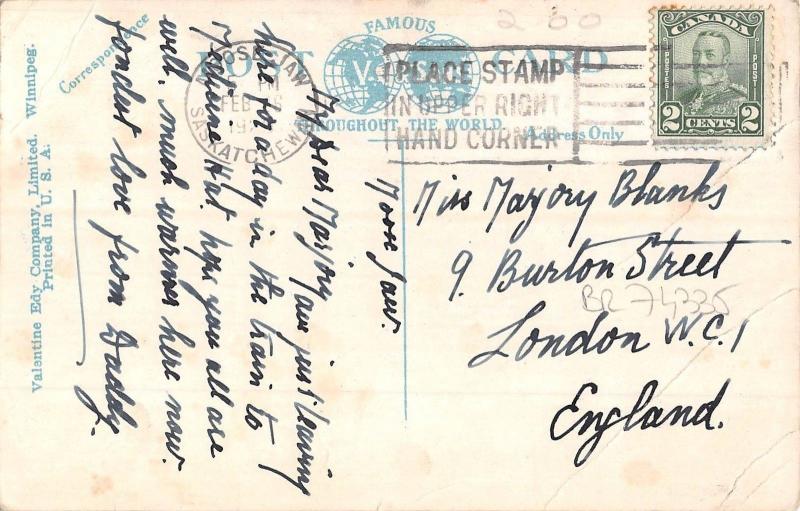 FAMOUS
POST CARD
THROUGHOUT THE WORLD
Correspondence
Address Only
Valentine Edy Company, Limited. Winnipeg.
Printed in U. S. A.
MOOSE JAW
PM
FEB
SASKATCHEWAN
PLACE STAMP
IN UPPER RIGHT
HAND CORNER
CANADA
POSTES POST
2 CENTS 2
200
Moose Jaw.
My dear Marjory am just leaving
here for a day in the train to
Medicine Hat hope you all are
well, much warmer here now.
fondest love from Daddy.
Miss Marjory Blanks
9. Burton Street
London W.C.1
England.
BR 74335